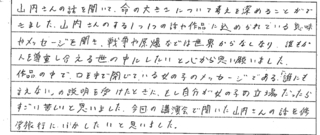 山内さんの話を聞いて、命の大きさについて考えを深めることがで
きました。山内さんのする1つ1つの話や作品に込められている意味
やメッセージを聞き、戦争や原爆などは世界からなくなり、誰もが
人を尊重し合える世の中にしたいと心から思い願いました。
作品の中で、口を手で閉じている女の子のメッセージである「誰にも
言えない」の説明を受けたときに、もし自分が女の子の立場だったら
すごい苦しいと思いました。今回の講演会で聞いた山内さんの話を修
学旅行にいかしたいと思いました。